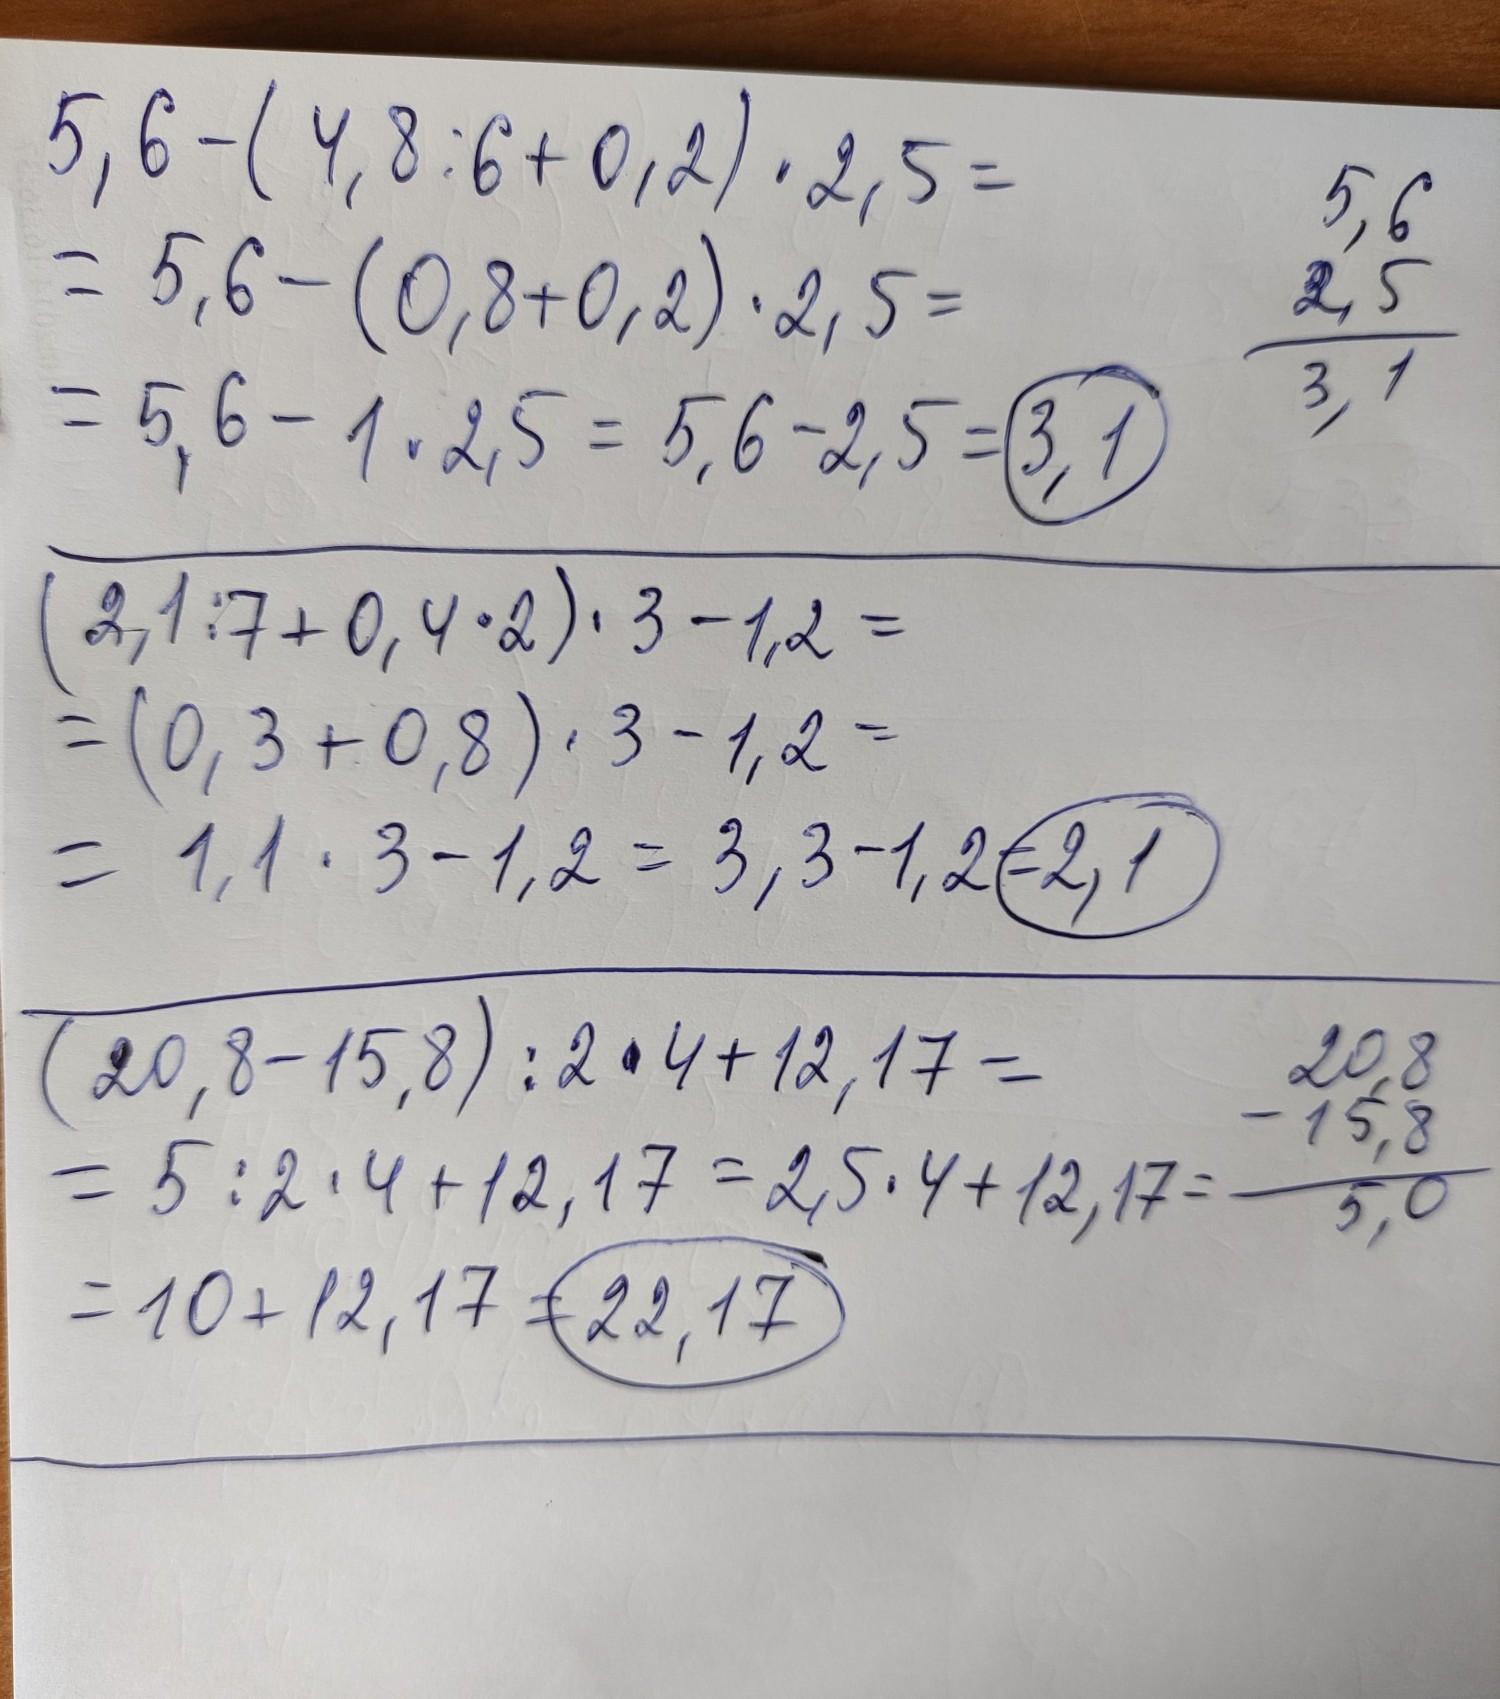 5,6-(4,8:6+0,2)·2,5=
=5,6-(0,8+0,2)·2,5=
=5,6-1·2,5=5,6-2,5=3,1
5,6
2,5
3,1
(2,1:7+0,4·2)·3-1,2=
=(0,3+0,8)·3-1,2=
=1,1·3-1,2=3,3-1,2=2,1
(20,8-15,8):2·4+12,17=
=5:2·4+12,17=2,5·4+12,17=
=10+12,17=22,17
20,8
-15,8
5,0